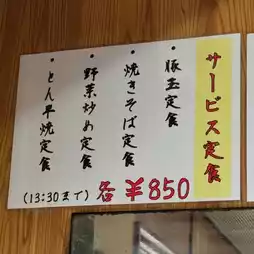 サービス定食
・豚玉定食
・焼きそば定食
・野菜炒め定食
・とん平焼定食
(13:30まで) 各¥850